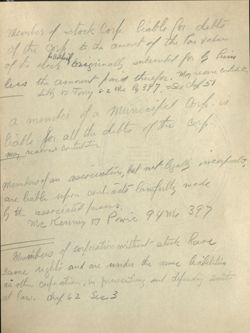 member of stock Corp. liable for debts
of the Corp to the amount of the Par value
of his stock originally subscribed for by him
less the amount paid therefor. May
62 Me Pg 347
a member of a Municipal Corp. is
liable for all the debts of the Corp.
Members of an association, but not legally incorporated,
are liable upon contracts lawfully made
by the associated
94 Me 397
Members of corporation without stock have
same rights and are under the same liabilities
as other corporations, in prosecuting and defending suits
at law. Chap 62 Sec 3